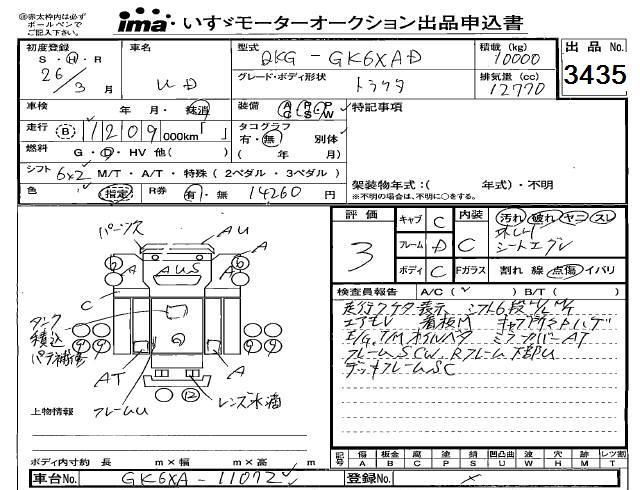 ※赤太枠内は必ず
ボールペンで
ご記入下さい。
ima いすゞモーターオークション出品申込書
初度登録 S・H・R 26/3月
車名 UD
型式 QKG-GK6XAD
積載(kg) 10000
出品No. 3435
グレード・ボディ形状 トラクタ
排気量(cc) 12770
車検 年 月・抹消
装備 AC PS PW
特記事項
走行 B 1209 000km「 」
タコグラフ 有・無 別体
燃料 G・D・HV 他( )
( 年 月)
シフト 6×2 M/T・A/T・特殊(2ペダル・3ペダル)
色 (指定) R券 有・無 14260円
架装物年式:( 年式)・不明
※不明の場合は、不明に○をする。
評価 3
キャブ C
フレーム D
ボディ C
内装 C
Fガラス
汚れ 破れ ヤニ スレ
シートエグレ
割れ 線 点傷 イバリ
検査員報告 A/C( ✓ ) B/T( )
走行ケタ表示 シフト6段
看板M
ミラーカバーAT
フレームSCW、Rフレーム下部U
デッキフレームSC
パーンズ
AU
A
A
AUS
6
6
C
タンク
積込
パテ補修
9 9 9 9
AT
フレームU
A
12
レンズ水滴
上物情報
ボディ内寸約 長 m×幅 m×高 m
記号 傷 A 板金 B 腐 C 塗 P 錆 S 凹凸曲 U 波 W 穴 H 跡 M レツ割 T
車台No. GK6XA-11072
登録No. ×